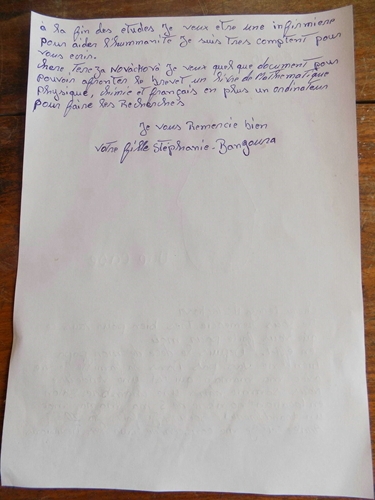 à la fin des etudes Je veux etre une infirmiere
pour aider l'humanité Je suis tres comptent pour
vous ecrir.
chere Tereza Nováchová Je veux quelque document pour
pouvoir affronter le brevet un livre de Mathematique
physique, chimie et français en plus un ordinateur
pour faire les Recherches
Je vous Remercie bien
votre fille Stéphanie-Bangoura